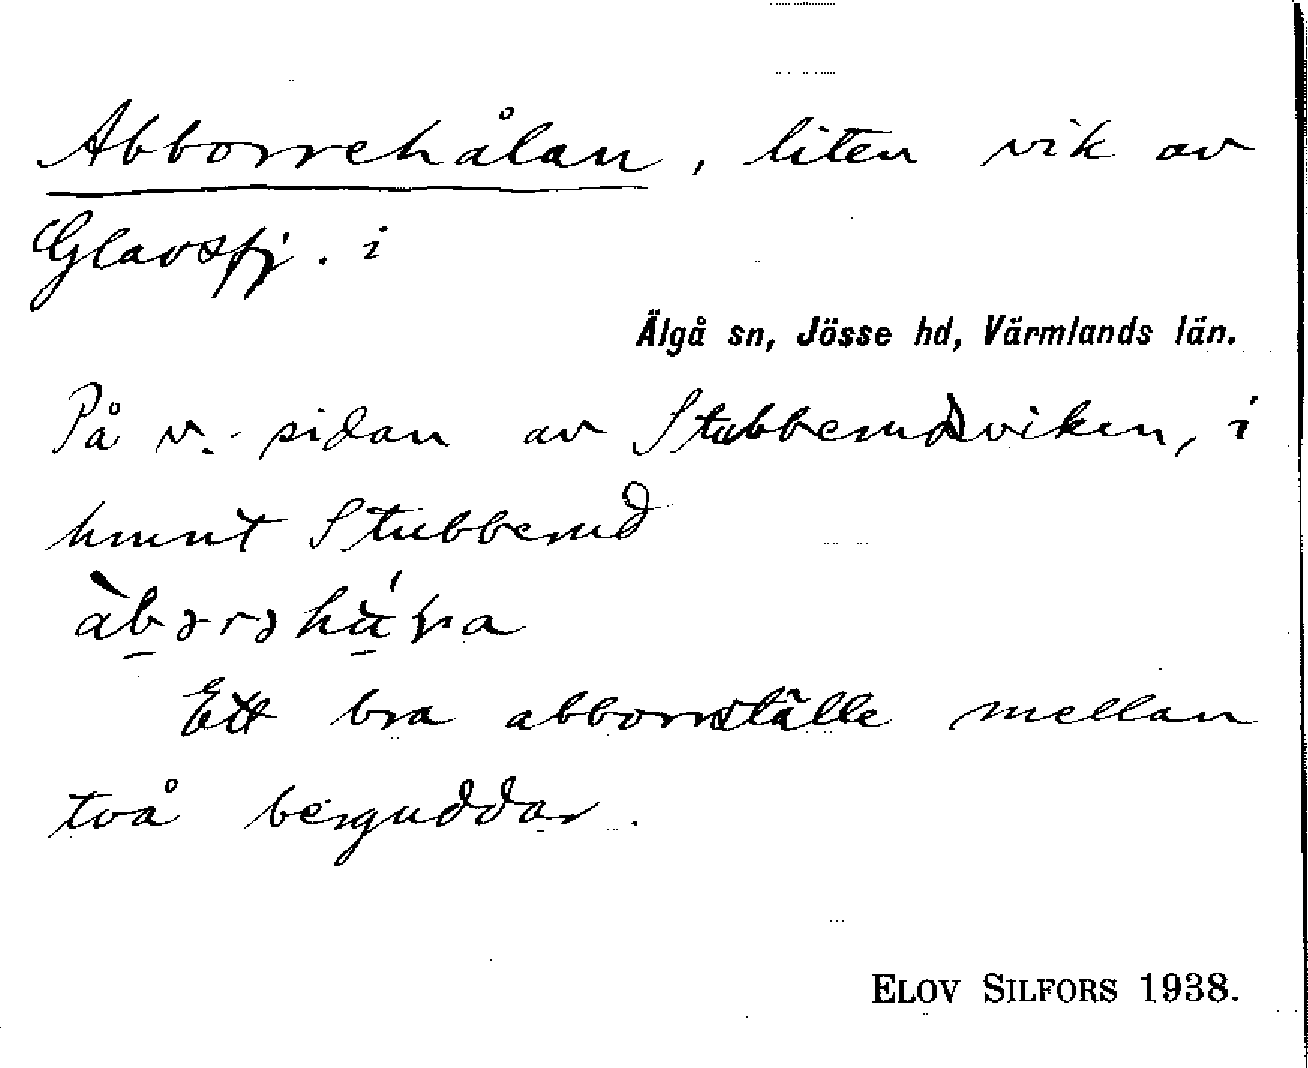 Abborrehålan, liten vik av
Glavsfj. i
Älgå sn, Jösse hd, Värmlands län.
På v. sidan av Stubberudviken, i
hmnt Stubberud
Ett bra abborrställe mellan
två berguddar.
ELOV SILFORS 1938.